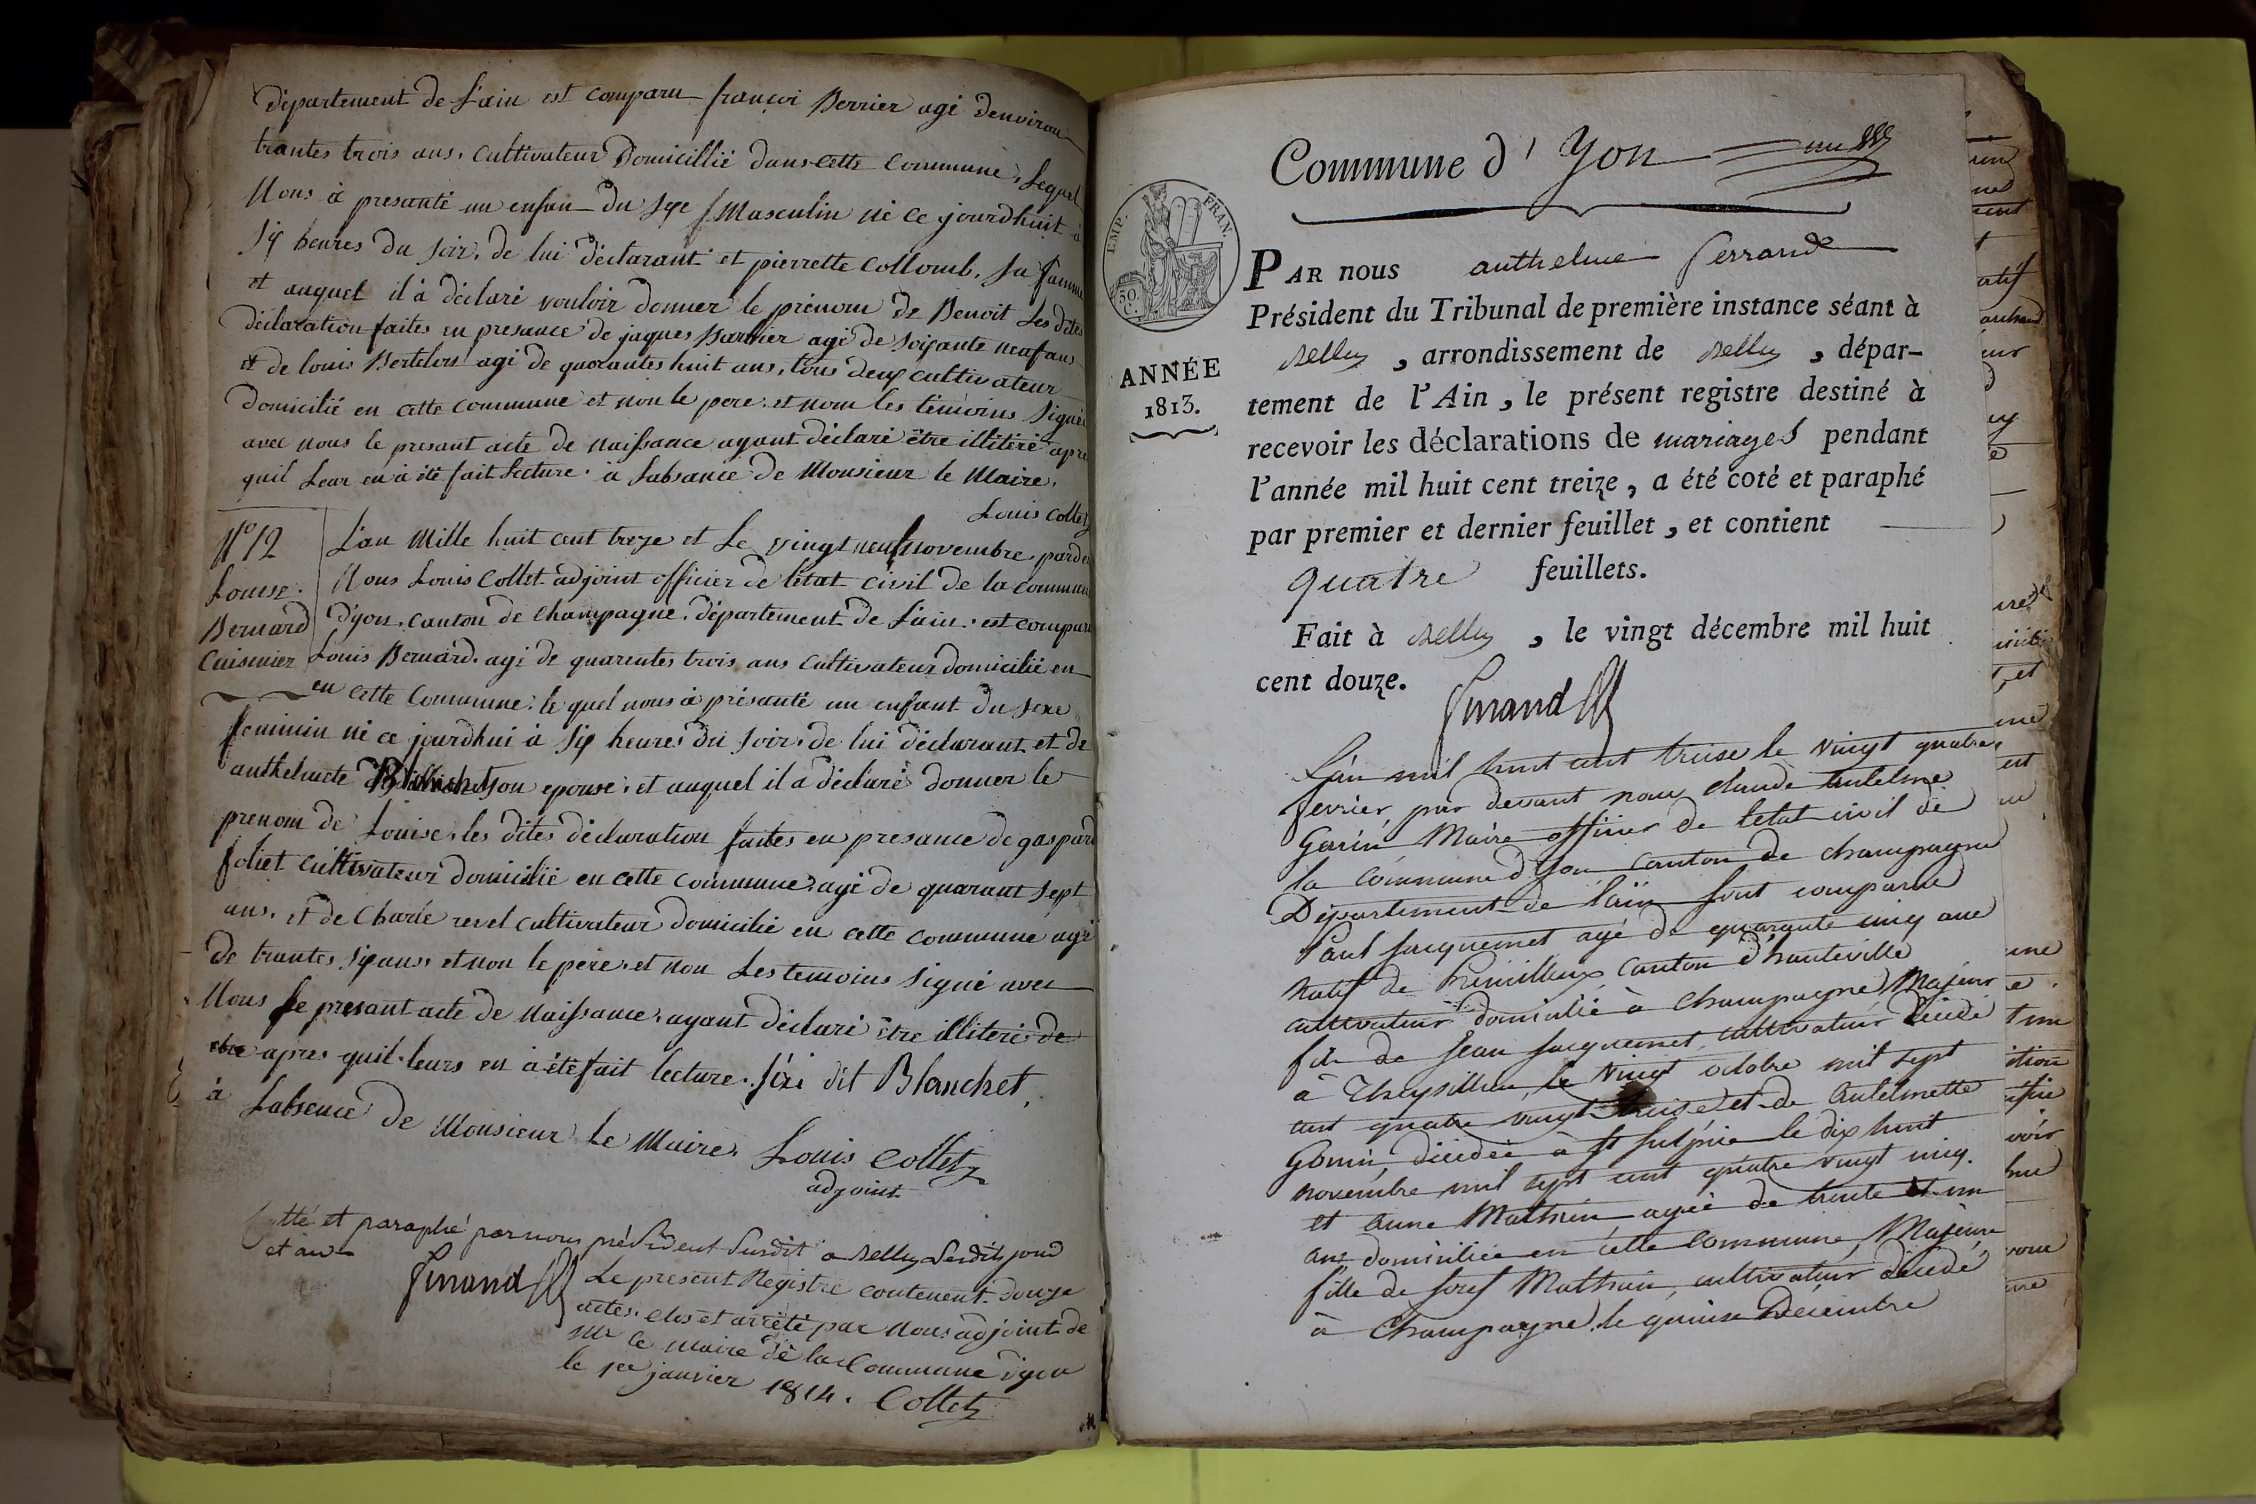 département de L'ain est comparu françoi Berrier agé denviron
trantes trois ans, cultivateur Domicillié dans cette Commune, lequel
Nous à presanté un enfan du sexe Masculin né ce jourdhuit à
six heures du soir, de lui déclarant et pierrette Collomb, sa famme
et auquel il à déclaré vouloir donner le prénom de Benoit Les dites
déclaration faites en presance de jaques Barbier agé de soixante neuf ans
et de louis Bertelos agé de quarantes huit ans, tous deux cultivateur
domicilié en cette commune et non le pere et nom les témoins Signés
avec nous le presant acte de naissance ayant déclaré être illitéré apre
quil Leur en à été fait Lecture. à Labsance de Monsieur le Maire,
Louis Collet
N° 12
Louise
Bernard
Cuisinier
L'an Mille huit cent treze et Le vingt neuf novembre, parde
Nous Louis Collet adjoint officier de létat civil de la commun
Dyon, canton de champagne, département de L'ain. est comparu
Louis Bernard, agé de quarentes trois ans cultivateur domicilié en
en cette Commune, le quel nous à présanté un enfant du sexe
feminin né ce jourdhui à six heures du soir, de lui déclarant et de
anthelmete Blanchet son epouse, et auquel il a déclaré donner le
prenom de Louise, les dites déclaration faites en presance de gaspard
foliet cultivateur domicilié en cette commune, agé de quarant sept
ans, et de Charle revel cultivateur domicilié en cette commune agé
de trantes six ans, et non le père, et non Les temoins signé avec
Nous le presant acte de Naissance, ayant déclaré être illiteré de
apres quil leurs en à été fait lecture. fixé dit Blanchet,
à Labsence de Monsieur le Maire, Louis Collet
adjoint
Cotté et paraphé par nous président Susdit a Belley Lesdits jour
et an
ferrand
Le present Registre contenent douze
actes. clos et arrêté par Nous adjoint de
Mr le Maire de la Commune dyon
le 1er janvier 1814. Collet
Commune d' Yon
IMP. FRAN.
50 C.
ANNÉE
1813.
PAR nous anthelme ferrand
Président du Tribunal de première instance séant à
Belley, arrondissement de Belley, dépar-
tement de l'Ain, le présent registre destiné à
recevoir les déclarations de mariages pendant
l'année mil huit cent treize, a été coté et paraphé
par premier et dernier feuillet, et contient
quatre feuillets.
Fait à Belley, le vingt décembre mil huit
cent douze.
ferrand
L'an mil huit cent treise le vingt quatre
fevrier, par devant nous claude antelme
Garin Maire officier de letat civil de
la commune d'Yon canton de champagne
Département de l'ain sont comparus
Paul jacquemet agé de quarante cinq ans
natif de Prémillieux canton d'hauteville
cultivateur domicilié à Champagne Majeur
fils de Jean Jacquemet, cultivateur décédé
à Thezillieu, le vingt octobre mil sept
cent quatre vingt treise et de Antelmette
Gonin, décédée à St Sulpice le dix huit
novembre mil sept cent quatre vingt cinq.
et anne Mathieu agée de trente et un
ans domiciliée en cette commune, Majeure
fille de Josef Mathieu, cultivateur décédé
à Champagne, le quinse Décembre